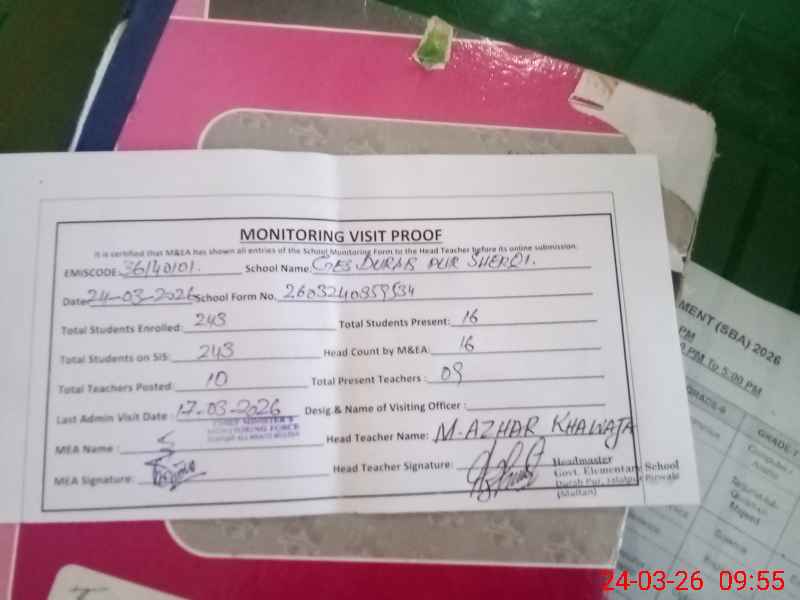 MONITORING VISIT PROOF
It is certified that M&EA has shown all entries of the School Monitoring Form to the Head Teacher before its online submission.
EMISCODE: 36140101. School Name: GES DURAB PUR SHERQI.
Date: 24-03-2026 School Form No. 2603240859534
Total Students Enrolled: 243 Total Students Present: 16
Total Students on SIS: 243 Head Count by M&EA: 16
Total Teachers Posted: 10 Total Present Teachers : 09
Last Admin Visit Date : 17-03-2026 Desig.& Name of Visiting Officer :
CHIEF MINISTER'S
MONITORING FORCE
MEA Name : Head Teacher Name: M-AZHAR KHAWAJA
MEA Signature: Head Teacher Signature:
Headmaster
Govt. Elementary School
Durab Pur, Jalalpur Pirwala
(Multan)
MENT (SBA) 2026
PM
PM To 5:00 PM
GRADE-6
GRADE-7
Computer /
Science
24-03-26 09:55